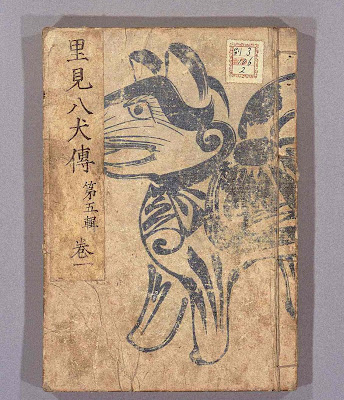 里見八犬傳 第五輯 巻一
3
186
2